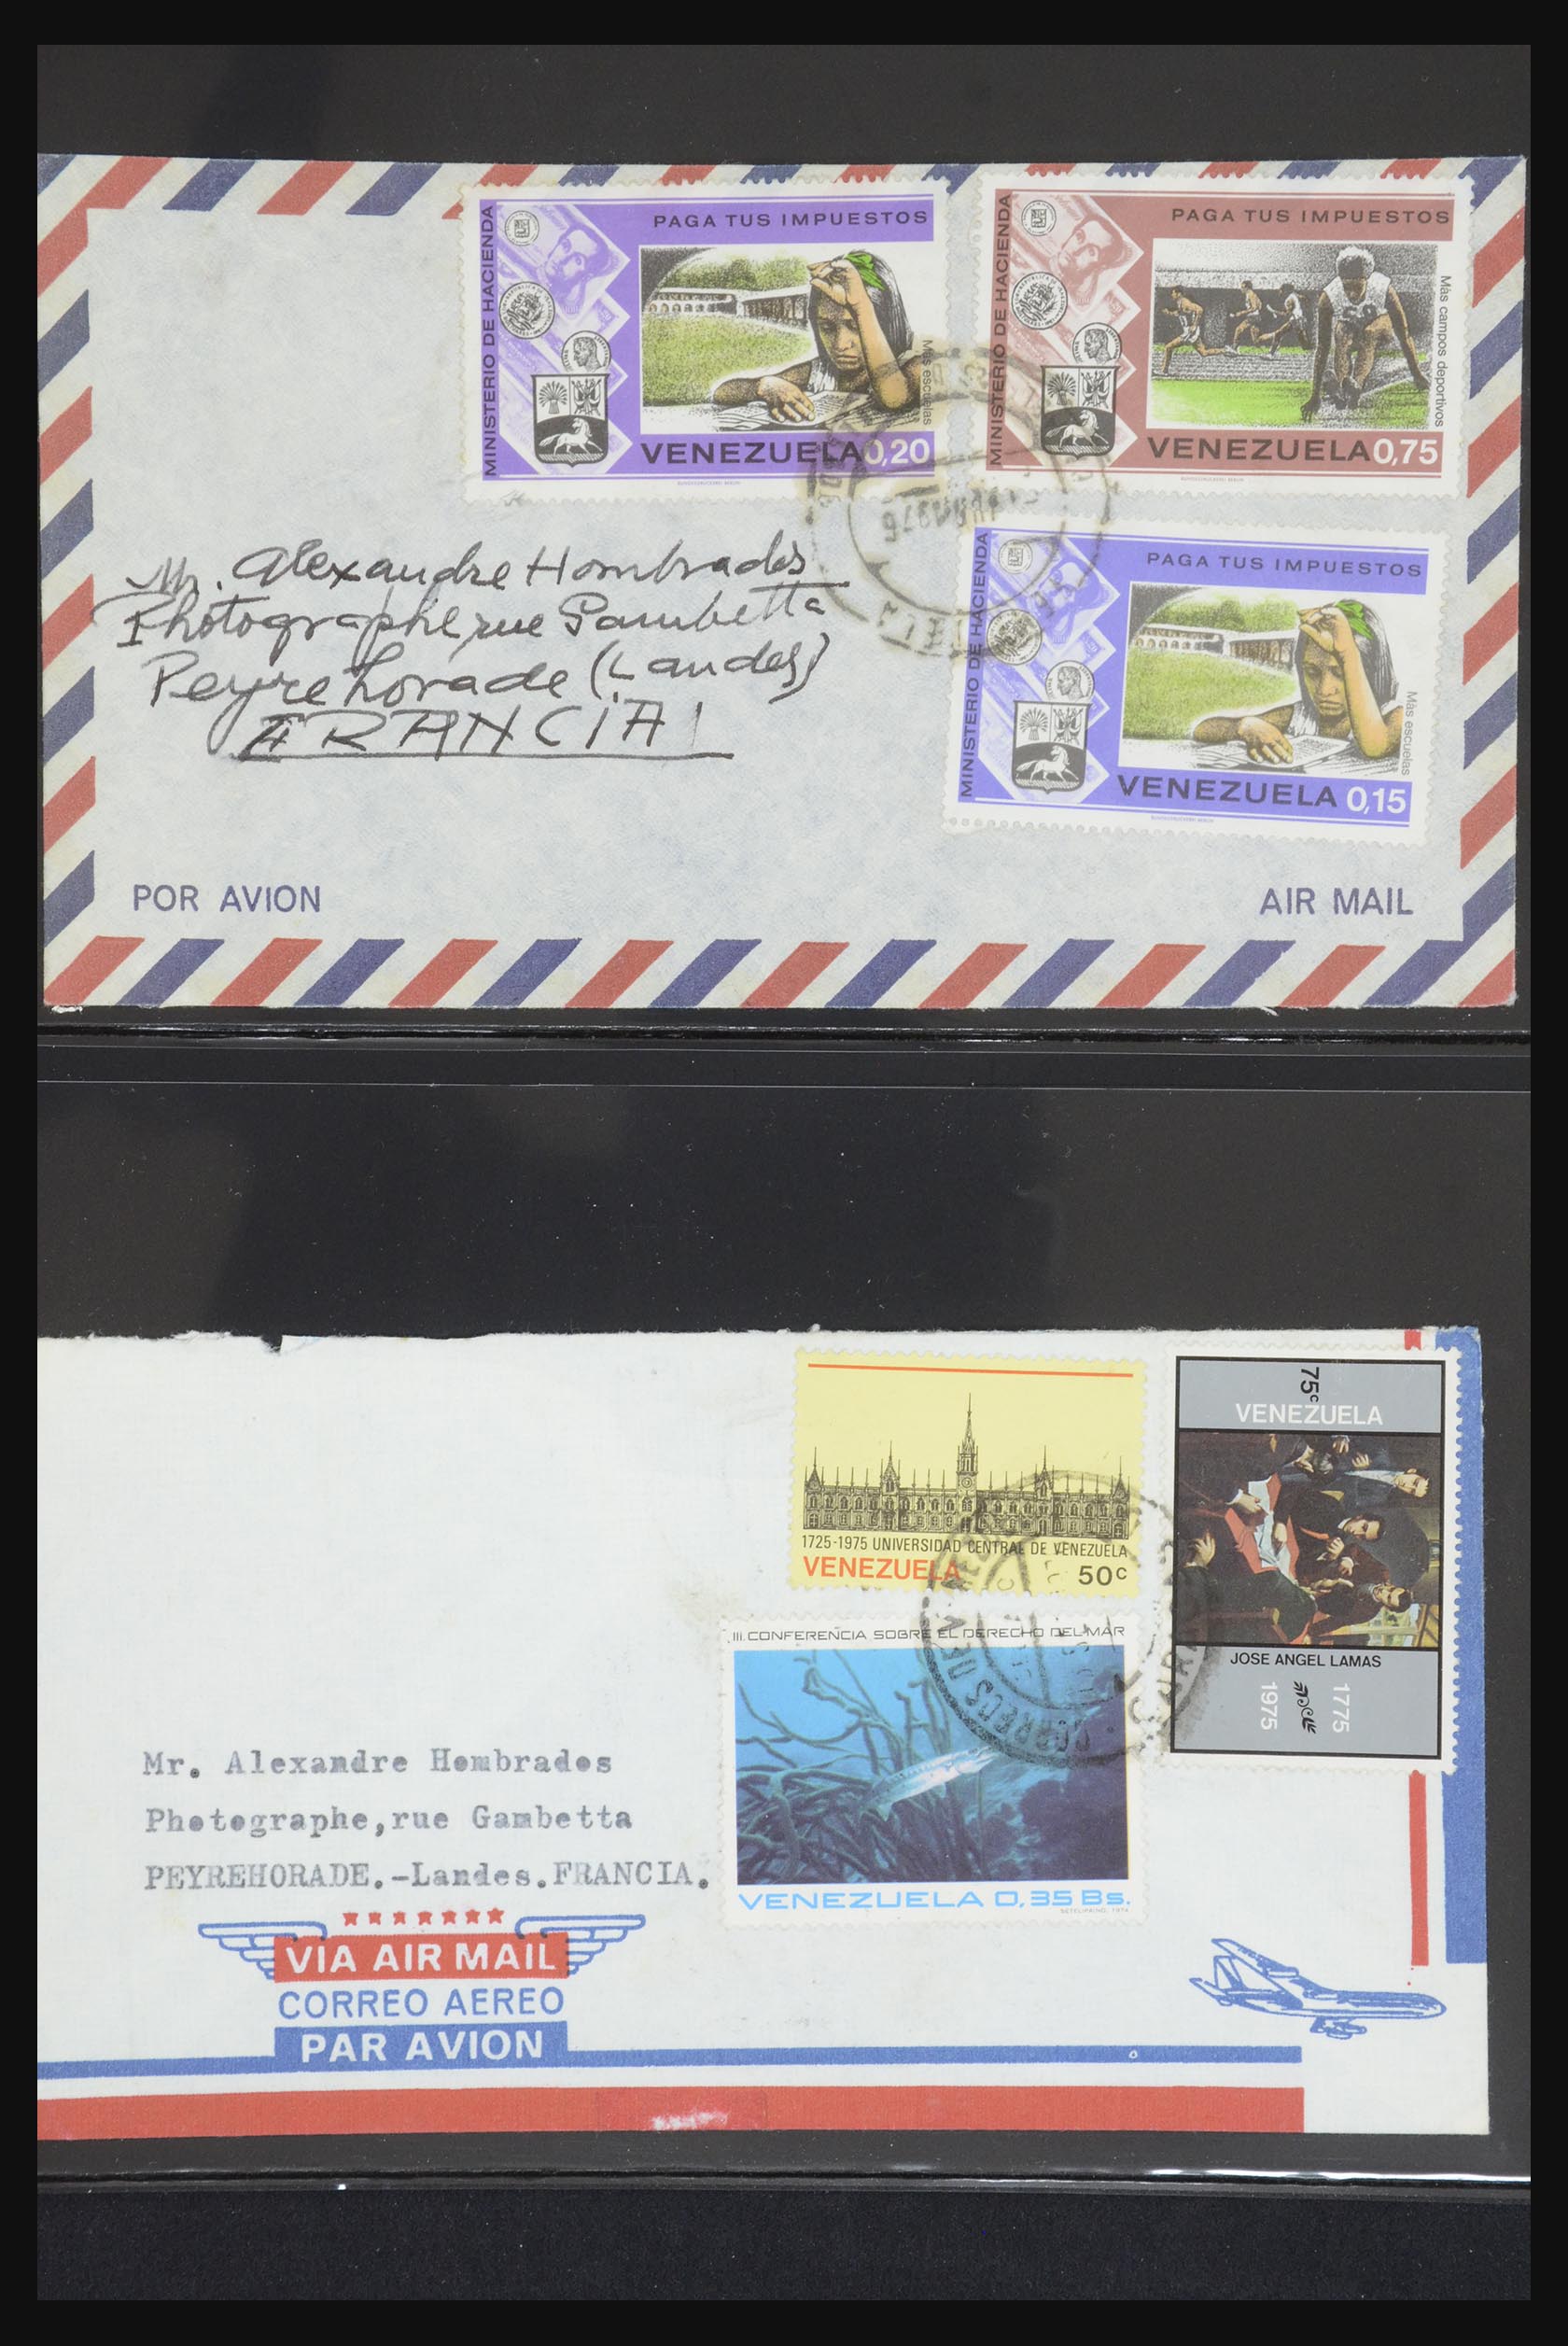 MINISTERIO DE HACIENDA
PAGA TUS IMPUESTOS
Más escuelas
VENEZUELA 0,20
MINISTERIO DE HACIENDA
PAGA TUS IMPUESTOS
Más campos deportivos
VENEZUELA 0,75
1976
Mr. Alexandre Hombrados
Photographe, rue Gambetta
Peyrehorade (Landes)
FRANCIA
MINISTERIO DE HACIENDA
PAGA TUS IMPUESTOS
Más escuelas
VENEZUELA 0,15
POR AVION
AIR MAIL
1725-1975 UNIVERSIDAD CENTRAL DE VENEZUELA
VENEZUELA 50c
75c
VENEZUELA
JOSE ANGEL LAMAS
1775
1975
III.CONFERENCIA SOBRE EL DERECHO DEL MAR
CORREOS DE
VENEZUELA 0,35 Bs.
Mr. Alexandre Hombrados
Photographe,rue Gambetta
PEYREHORADE.-Landes.FRANCIA.
VIA AIR MAIL
CORREO AEREO
PAR AVION